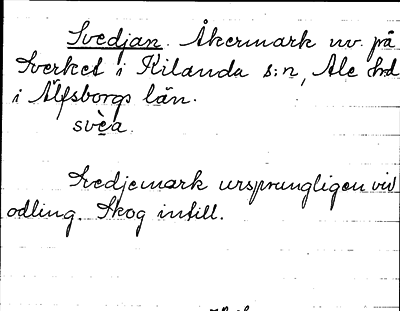 Svedjan. Åkermark nv. på
Sverket i Kilanda s:n, Ale hd
i Älfsborgs län.
svèa.
Svedjemark ursprungligen vid
odling. Skog intill.